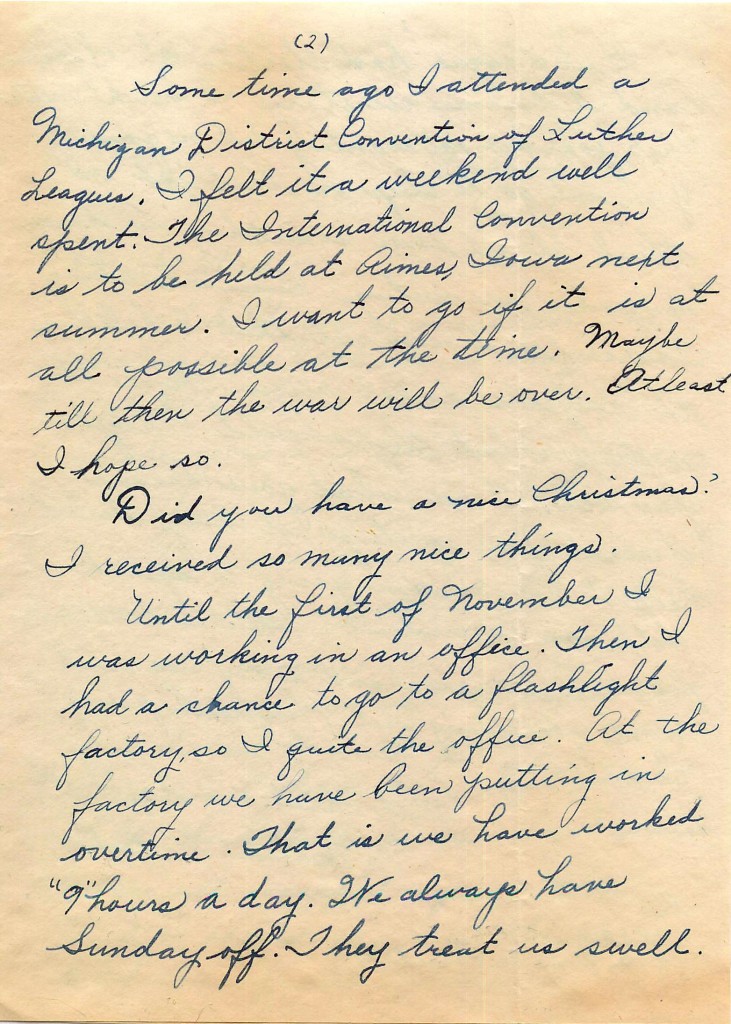 (2)
Some time ago I attended a
Michigan District Convention of Luther
Leagues. I felt it a weekend well
spent. The International Convention
is to be held at Aimes, Iowa next
summer. I want to go if it is at
all possible at the time. Maybe
till then the war will be over. Atleast
I hope so.
Did you have a nice Christmas?
I received so many nice things.
Until the first of November I
was working in an office. Then I
had a chance to go to a flashlight
factory, so I quite the office. At the
factory we have been putting in
overtime. That is we have worked
"9" hours a day. We always have
Sunday off. They treat us swell.